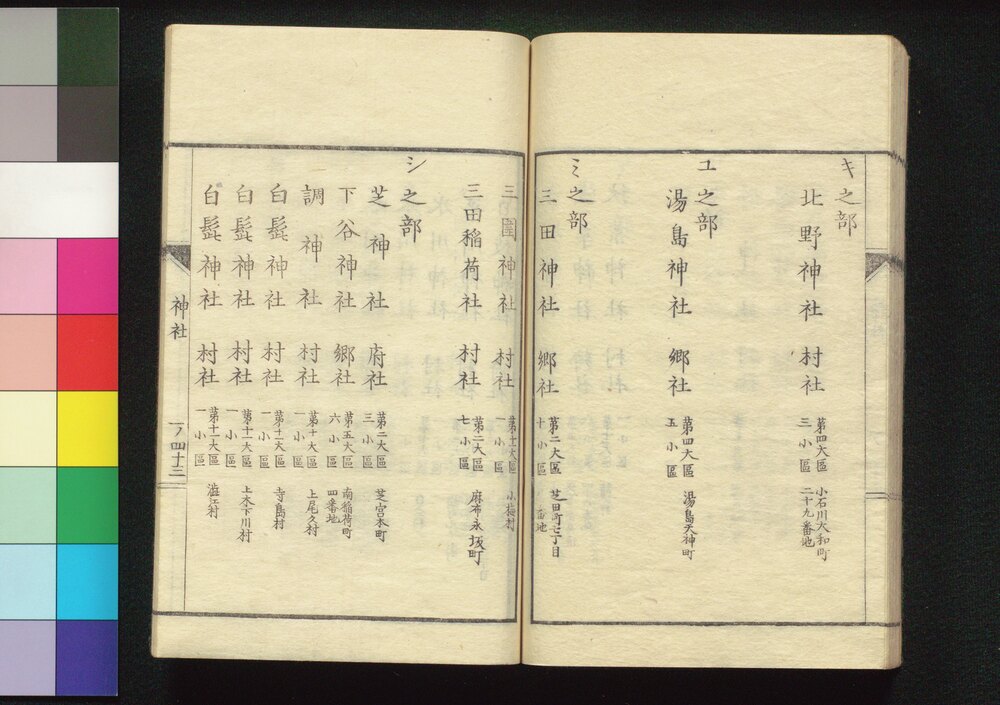 キ之部
北野神社 村社 第四大區 三小區 小石川大和町 二十九番地
ユ之部
湯島神社 郷社 第四大區 五小區 湯島天神町
ミ之部
三田神社 郷社 第二大區 十小區 芝田町七丁目 番地
三圍神社 村社 第十一大區 一小區 小梅村
三田稲荷社 村社 第二大區 七小區 麻布永坂町
シ之部
芝神社 府社 第二大區 三小區 芝宮本町
下谷神社 郷社 第五大區 六小區 南稲荷町 四番地
調神社 村社 第十大區 一小區 上尾久村
白髭神社 村社 第十一大區 一小區 寺島村
白髭神社 村社 第十一大區 一小區 上木下川村
白髭神社 村社 第十一大區 一小區 澁江村
神社
一ノ四十三